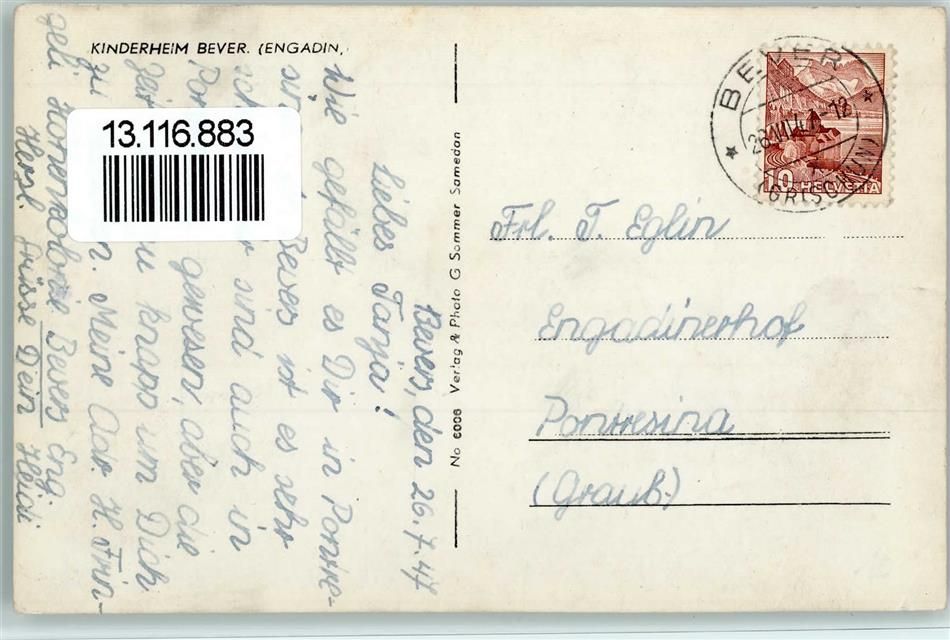 KINDERHEIM BEVER. (ENGADIN,
13.116.883
Bevers, den 26.7.47
Liebes Tanja!
Wie gefällt es Dir in Pontre-
Bever ist es sehr
sind auch in
gewesen, aber die
knapp um Dich
Meine Adr. H. Frin-
geli Ferienkolonie Bevers Eng.
Herzl. Grüsse Dein Heidi
No 6006 Verlag & Photo G Sommer Samedan
BEVER
(GRISONS)
10 HELVETIA
Frl. T. Eglin
Engadinerhof
Pontresina
(Graub.)